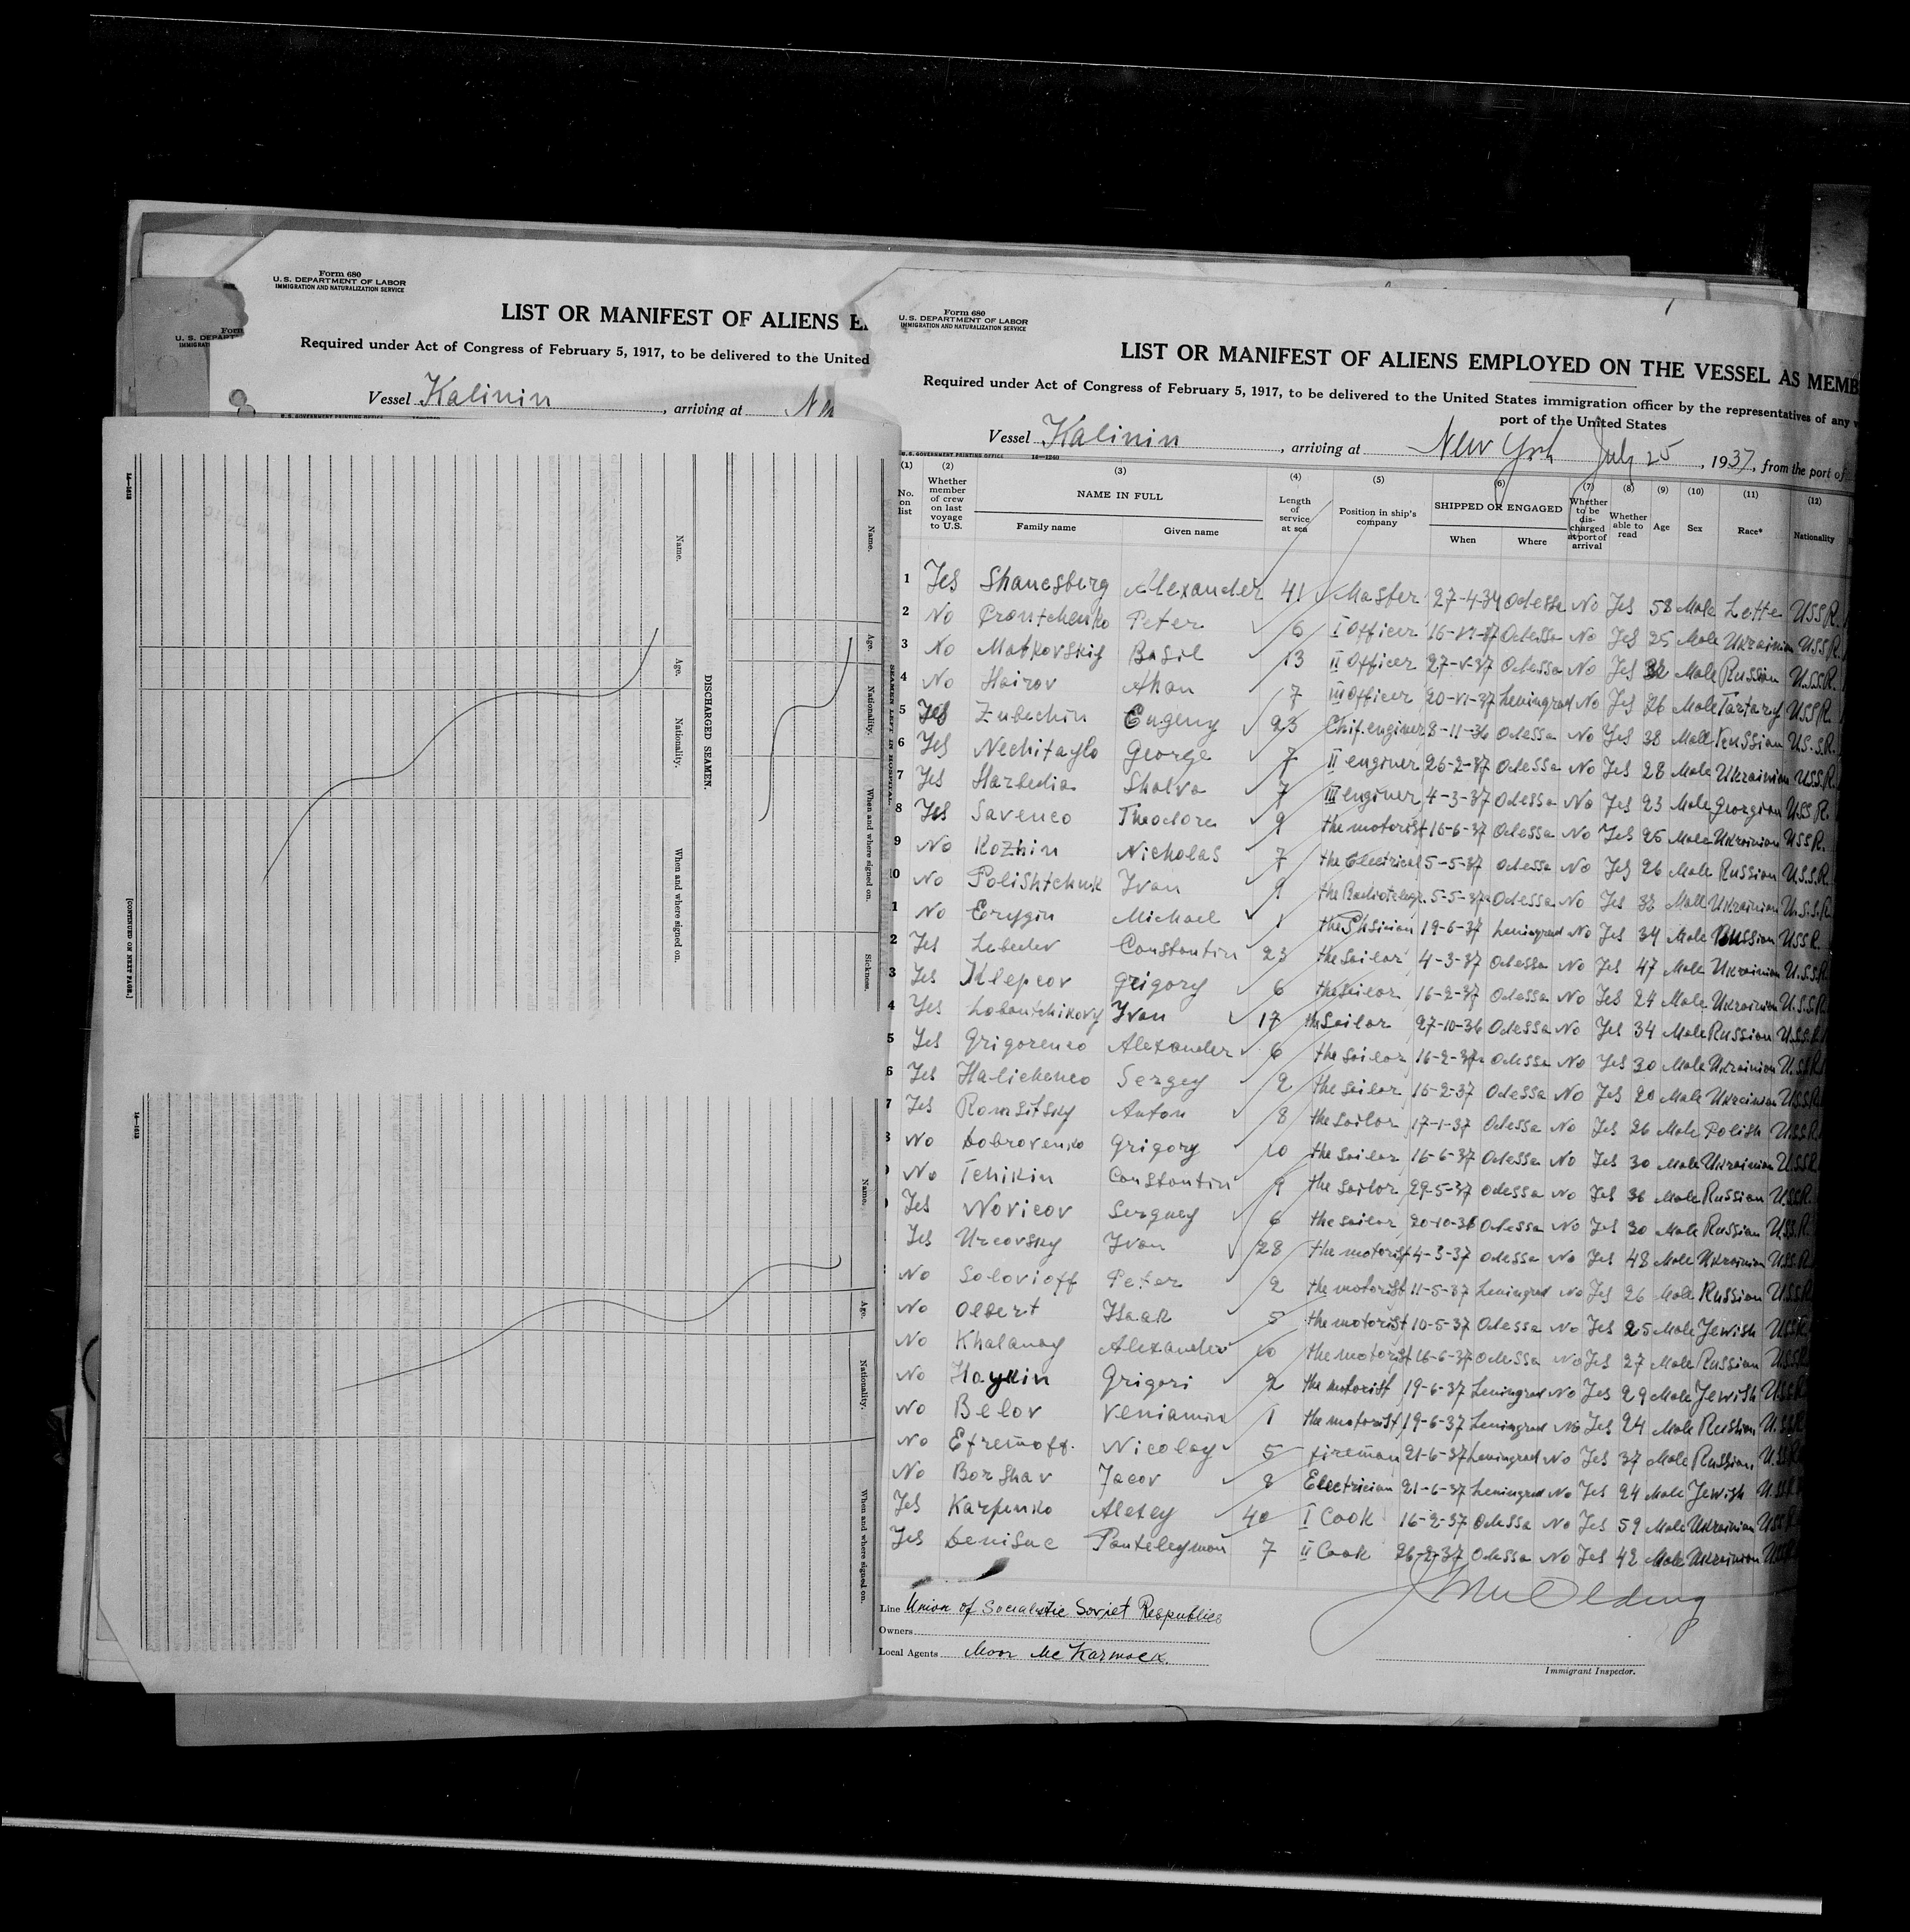 Form 680
U. S. DEPARTMENT OF LABOR
IMMIGRATION AND NATURALIZATION SERVICE
LIST OR MANIFEST OF ALIENS
Required under Act of Congress of February 5, 1917, to be delivered to the United
Vessel Kalinin, arriving at
Form
U. S. DEPART
IMMIGRAT
U. S. GOVERNMENT PRINTING OFFICE
Name. Age. Nationality. When and where signed on. Sickness.
SEAMEN LEFT IN HOSPITAL
DISCHARGED SEAMEN.
Name. Age. Nationality. When and where signed on.
[CONTINUED ON NEXT PAGE.]
14—1613
Name. Age. Nationality. When and where signed on.
14—1613
Form 680
U. S. DEPARTMENT OF LABOR
IMMIGRATION AND NATURALIZATION SERVICE
LIST OR MANIFEST OF ALIENS EMPLOYED ON THE VESSEL AS MEMB
Required under Act of Congress of February 5, 1917, to be delivered to the United States immigration officer by the representatives of any
port of the United States
Vessel Kalinin, arriving at New York July 25, 1937, from the port of
U. S. GOVERNMENT PRINTING OFFICE 14—1240
(1) (2) (3) (4) (5) (6) (7) (8) (9) (10) (11) (12)
No. on list Whether member of crew on last voyage to U.S. NAME IN FULL Family name Given name Length of service at sea Position in ship's company SHIPPED OR ENGAGED When Where Whether to be discharged at port of arrival Whether able to read Age Sex Race* Nationality
1 Yes Shanesburg Alexander 41 Master 27-4-34 Odessa No Yes 58 Male Lette USSR.
2 No Prontchenko Peter 6 I officer Odessa No Yes 25 Male Ukrainian USSR.
3 No Matkovskiy Basil 13 II officer 27-V-37 Odessa No Yes Male Russian U.S.S.R.
4 No Hairov Ahan 7 III officer 20-VI-37 Leningrad No Yes 26 Male Tartary USSR.
5 Yes Zubechin Eugeny 23 Chif. enginer 8-11-36 Odessa No Yes 38 Male Russian U.S.S.R.
6 Yes Nechitaylo George 7 II enginer 26-2-37 Odessa No Yes 28 Male Ukrainian USSR.
7 Yes Harbedia Shalva 7 III enginer 4-3-37 Odessa No Yes 23 Male Georgian USSR.
8 Yes Savenco Theodore 9 the motorist 16-6-37 Odessa No Yes 25 Male Ukrainian USSR.
9 No Kozhin Nicholas 7 the Electrical 5-5-37 Odessa No Yes 26 Male Russian U.S.S.R.
10 No Polishtchuk Yvan 9 the Radiotelegr. 5-5-37 Odessa No Yes 32 Male Ukrainian U.S.S.R.
1 No Erygin Michael 1 the Phisinian 19-6-37 Leningrad No Yes 34 Male Russian USSR.
2 Yes Lebedev Constantin 23 the sailor 4-3-37 Odessa No Yes 47 Male Ukrainian U.S.S.R.
3 Yes Klepcov Grigory 6 the sailor 16-2-37 Odessa No Yes 24 Male Ukrainian U.S.S.R.
4 Yes Lobantchikovy Yvan 17 the Sailor 27-10-36 Odessa No Yes 34 Male Russian U.S.S.R.
5 Yes Grigorenco Alexander 6 the sailor 16-2-37 Odessa No Yes 30 Male Ukrainian U.S.S.R.
6 Yes Halichenco Sergey 2 the sailor 16-2-37 Odessa No Yes 20 Male Ukrainian U.S.S.R.
7 Yes Romsitsky Anton 8 the sailor 17-1-37 Odessa No Yes 26 Male Polish U.S.S.R.
8 No Dobrovenko Grigory 10 the sailor 16-6-37 Odessa No Yes 30 Male Ukrainian U.S.S.R.
No Tchikin Constantin 9 the sailor 29-5-37 Odessa No Yes 36 Male Russian U.S.S.R.
Yes Novicov Serguey 6 the sailor 20-10-36 Odessa No Yes 30 Male Russian U.S.S.R.
Yes Urcovsky Yvan 28 the motorist 4-3-37 Odessa No Yes 48 Male Ukrainian U.S.S.R.
No Solovioff Peter 2 the motorist 11-5-37 Leningrad No Yes 26 Male Russian U.S.S.R.
No Olbert Isaak 5 the motorist 10-5-37 Odessa No Yes 25 Male Jewish USSR
No Khalanay Alexander 10 the motorist 16-6-37 Odessa No Yes 27 Male Russian U.S.S.R.
No Haykin Grigori 2 the motorist 19-6-37 Leningrad No Yes 29 Male Jewish U.S.S.R.
No Belov Veniamin 1 the motorist 19-6-37 Leningrad No Yes 24 Male Russian U.S.S.R.
No Efremoff. Nicolay 5 fireman 21-6-37 Leningrad No Yes 37 Male Russian U.S.S.R.
No Borshav Jacov 8 Electrician 21-6-37 Leningrad No Yes 24 Male Jewish U.S.S.R.
Yes Karpenko Alexey 40 I Cook 16-2-37 Odessa No Yes 59 Male Ukrainian USSR
Yes Denisuc Panteleymon 7 II Cook 26-2-37 Odessa No Yes 42 Male Ukrainian USSR
Line Union of Socialistic Soviet Respublics
Owners
Local Agents Moor Mc Karmack.
Immigrant Inspector.